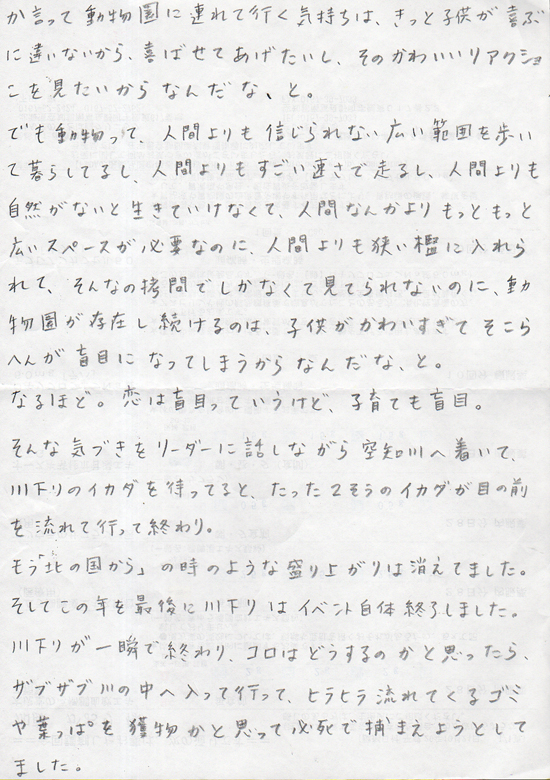 か言って動物園に連れて行く気持ちは、きっと子供が喜ぶ
に違いないから、喜ばせてあげたいし、そのかわいいリアクショ
こを見たいからなんだな、と。
でも動物って、人間よりも信じられない広い範囲を歩い
て暮らしてるし、人間よりもすごい速さで走るし、人間よりも
自然がないと生きていけなくて、人間なんかよりもっともっと
広いスペースが必要なのに、人間よりも狭い檻に入れら
れて、そんなの拷問でしかなくて見てられないのに、動
物園が存在し続けるのは、子供がかわいすぎてそこら
へんが盲目になってしまうからなんだな、と。
なるほど。恋は盲目っていうけど、子育ても盲目。
そんな気づきをリーダーに話しながら空知川へ着いて、
川下りのイカダを待ってると、たった2そうのイカダが目の前
を流れて行って終わり。
もう「北の国から」の時のような盛り上がりは消えてました。
そしてこの年を最後に川下りはイベント自体終了しました。
川下りが一瞬で終わり、コロはどうするのかと思ったら、
ザブザブ川の中へ入って行って、ヒラヒラ流れてくるゴミ
や葉っぱを獲物かと思って必死で捕まえようとして
ました。